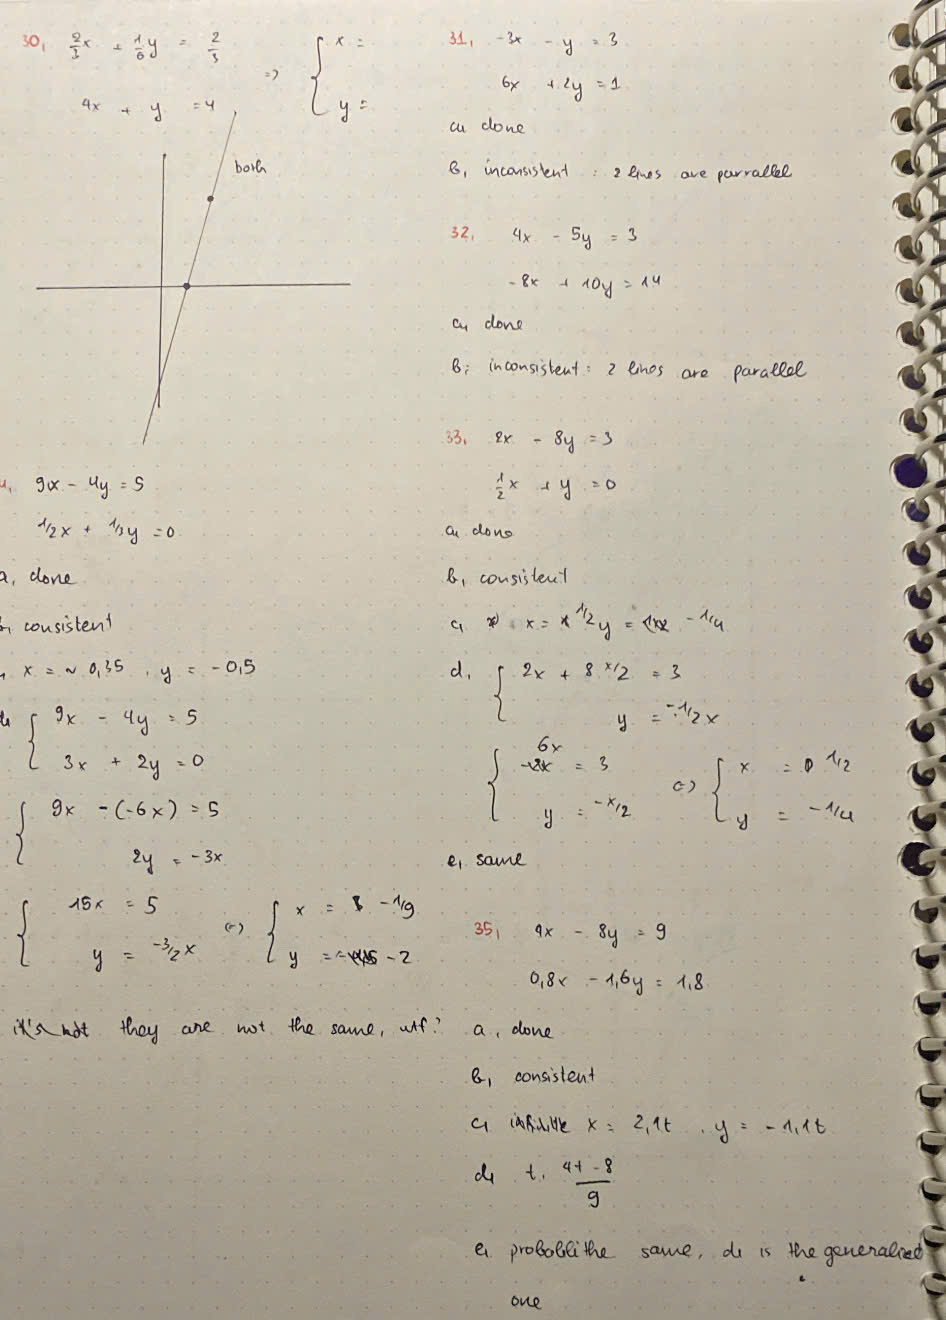 30, 2/3 x + 1/6 y = 2/3 => { x =
4x + y = 4 y =
both
9x - 4y = 5
1/2 x + 1/3 y = 0
a, done
consistent
x = ~ 0,35 , y = -0,5
{ 9x - 4y = 5
3x + 2y = 0
{ 9x - (-6x) = 5
2y = -3x
{ 15x = 5 <=> { x = -1/9
y = -3/2 x y = -2
they are not the same, wtf?
31, -3x - y = 3
6x + 2y = 1
a, done
b, inconsistent : 2 lines are parrallel
32, 4x - 5y = 3
-8x + 10y = 14
a, done
b, inconsistent : 2 lines are parallel
33, 2x - 8y = 3
1/2 x + y = 0
a, done
b, consistent
c, x = 1/2 y = -1/4
d, { 2x + 8 x/2 = 3
y = -1/2 x
{ 6x = 3 <=> { x = 1/2
y = -x/2 y = -1/4
e, same
35, 4x - 8y = 9
0,8x - 1,6y = 1,8
a, done
b, consistent
c, x = 2,1t , y = -1,1t
d, t, 4t - 8 / 9
e, probabli the same, d, is the generalized
one